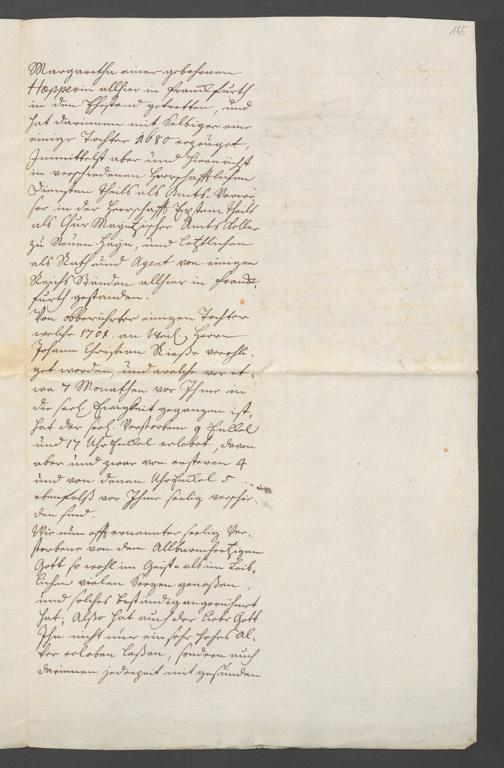 165
Margaretha einer gebohrnen
Hoppe­rin allhier in Franckfurth
in den Ehestand getretten, und
hat darinnen mit Selbiger eine
einige Tochter 1680 erzeuget,
Immittelst aber und hiernächst
in verschiedenen Herrschafftlichen
Diensten theils als Amts-Verwe
ser in der Herrschafft Epstein theils
als Chur Mayntzischer Amts Keller
zu Neuen Hayn, und letztlichen
als Rath und Agent von einigen
Reichs Ständen allhier in Franck
furth gestanden.
Von obberührter einigen Tochter
welche 1701 an Weil. Herrn
Johann Christian verehli-
get worden, und welche vor et-
wa 7 Monathen vor Ihme in
die seel. Ewigkeit gegangen ist,
hat der seel. Verstorbene 9 Enckel
und 17 UhrEnckel erlebet, davon
aber und zwar von ersteren 4
und von denen UhrEnckel 5
ebenfalß vor Ihme seelig verschie-
den sind.
Wie nun offt ernannter seelig Ver-
storbene von dem Allbarmhertzigen
Gott so wohl im Geist- als im Leib-
lichen vielen Seegen genoßen,
und solches beständig angerühmt
hat; Also hat auch der liebe Gott
Ihn nicht nur ein sehr hohes Al-
ter erleben laßen, sondern auch
darinnen jederzeit mit gesunden